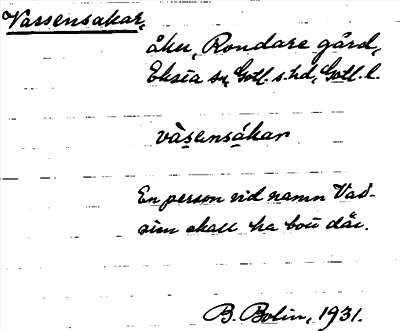 Vassensakar,
åker, Rondare gård,
Eksta sn, Gotl. s. hd, Gotl. l.
vàsensákar
En person vid namn Vad-
sim skall ha bott där.
B. Bolin, 1931.